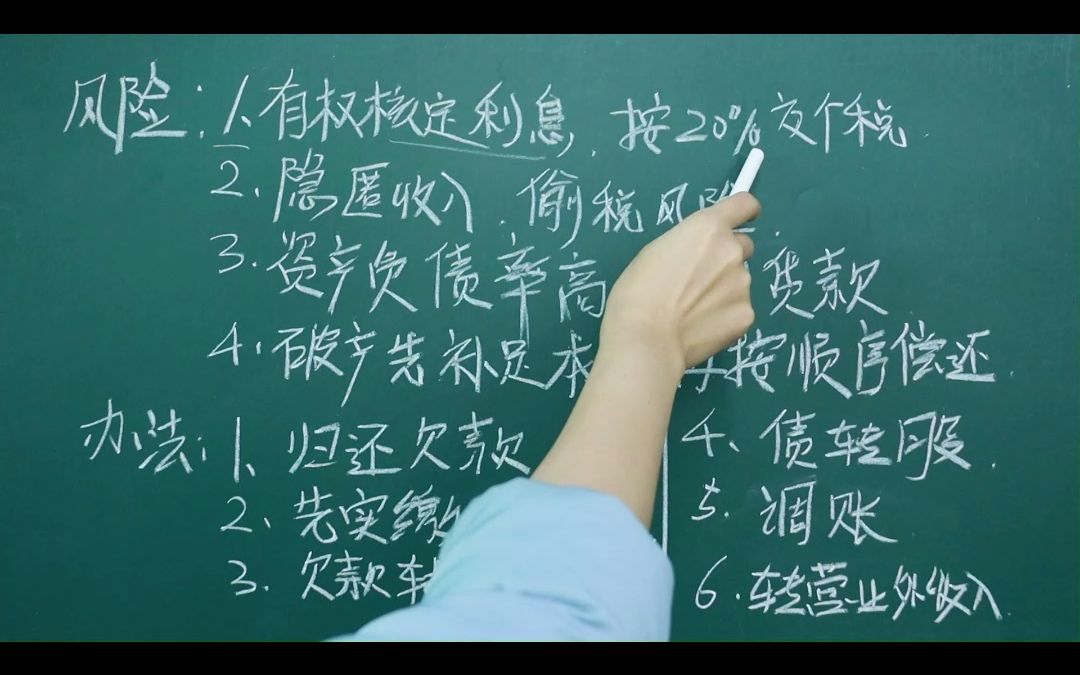 风险：1、有权核定利息，按20%交个税.
2、隐匿收入．偷税风险.
3、资产负债率高 货款
4、破产先补足本 按顺序偿还.
办法：1、归还欠款
2、先实缴
3、欠款转
4、债转股.
5、调账
6、转营业外收入.